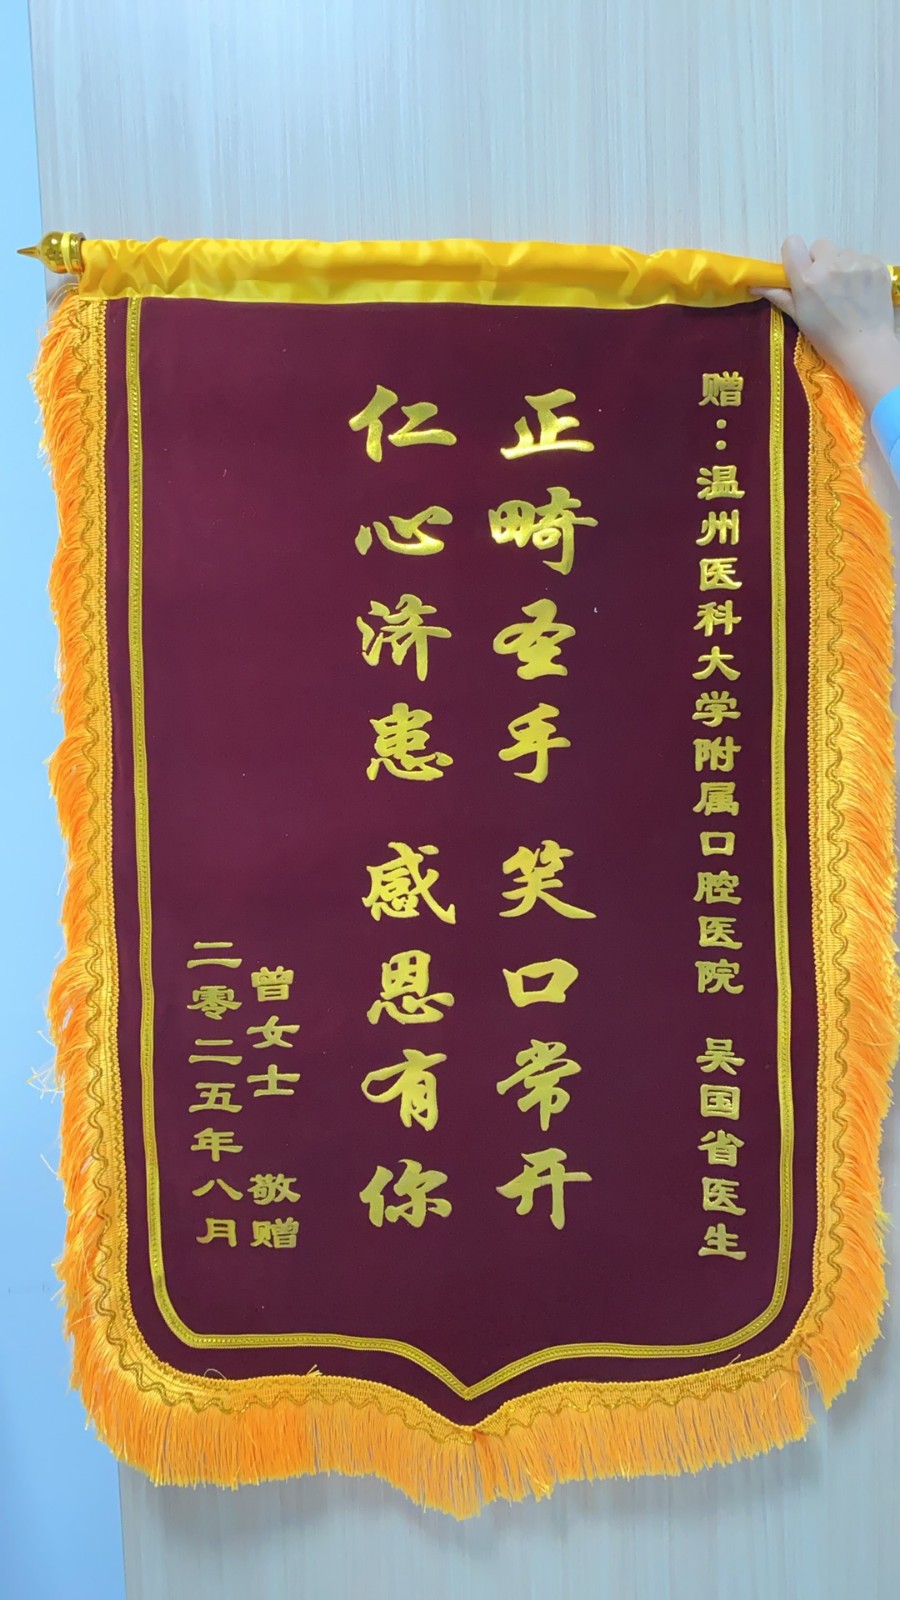 赠：温州医科大学附属口腔医院 吴国省医生
正畸圣手 笑口常开
仁心济患 感恩有你
曾女士 敬赠
二零二五年八月